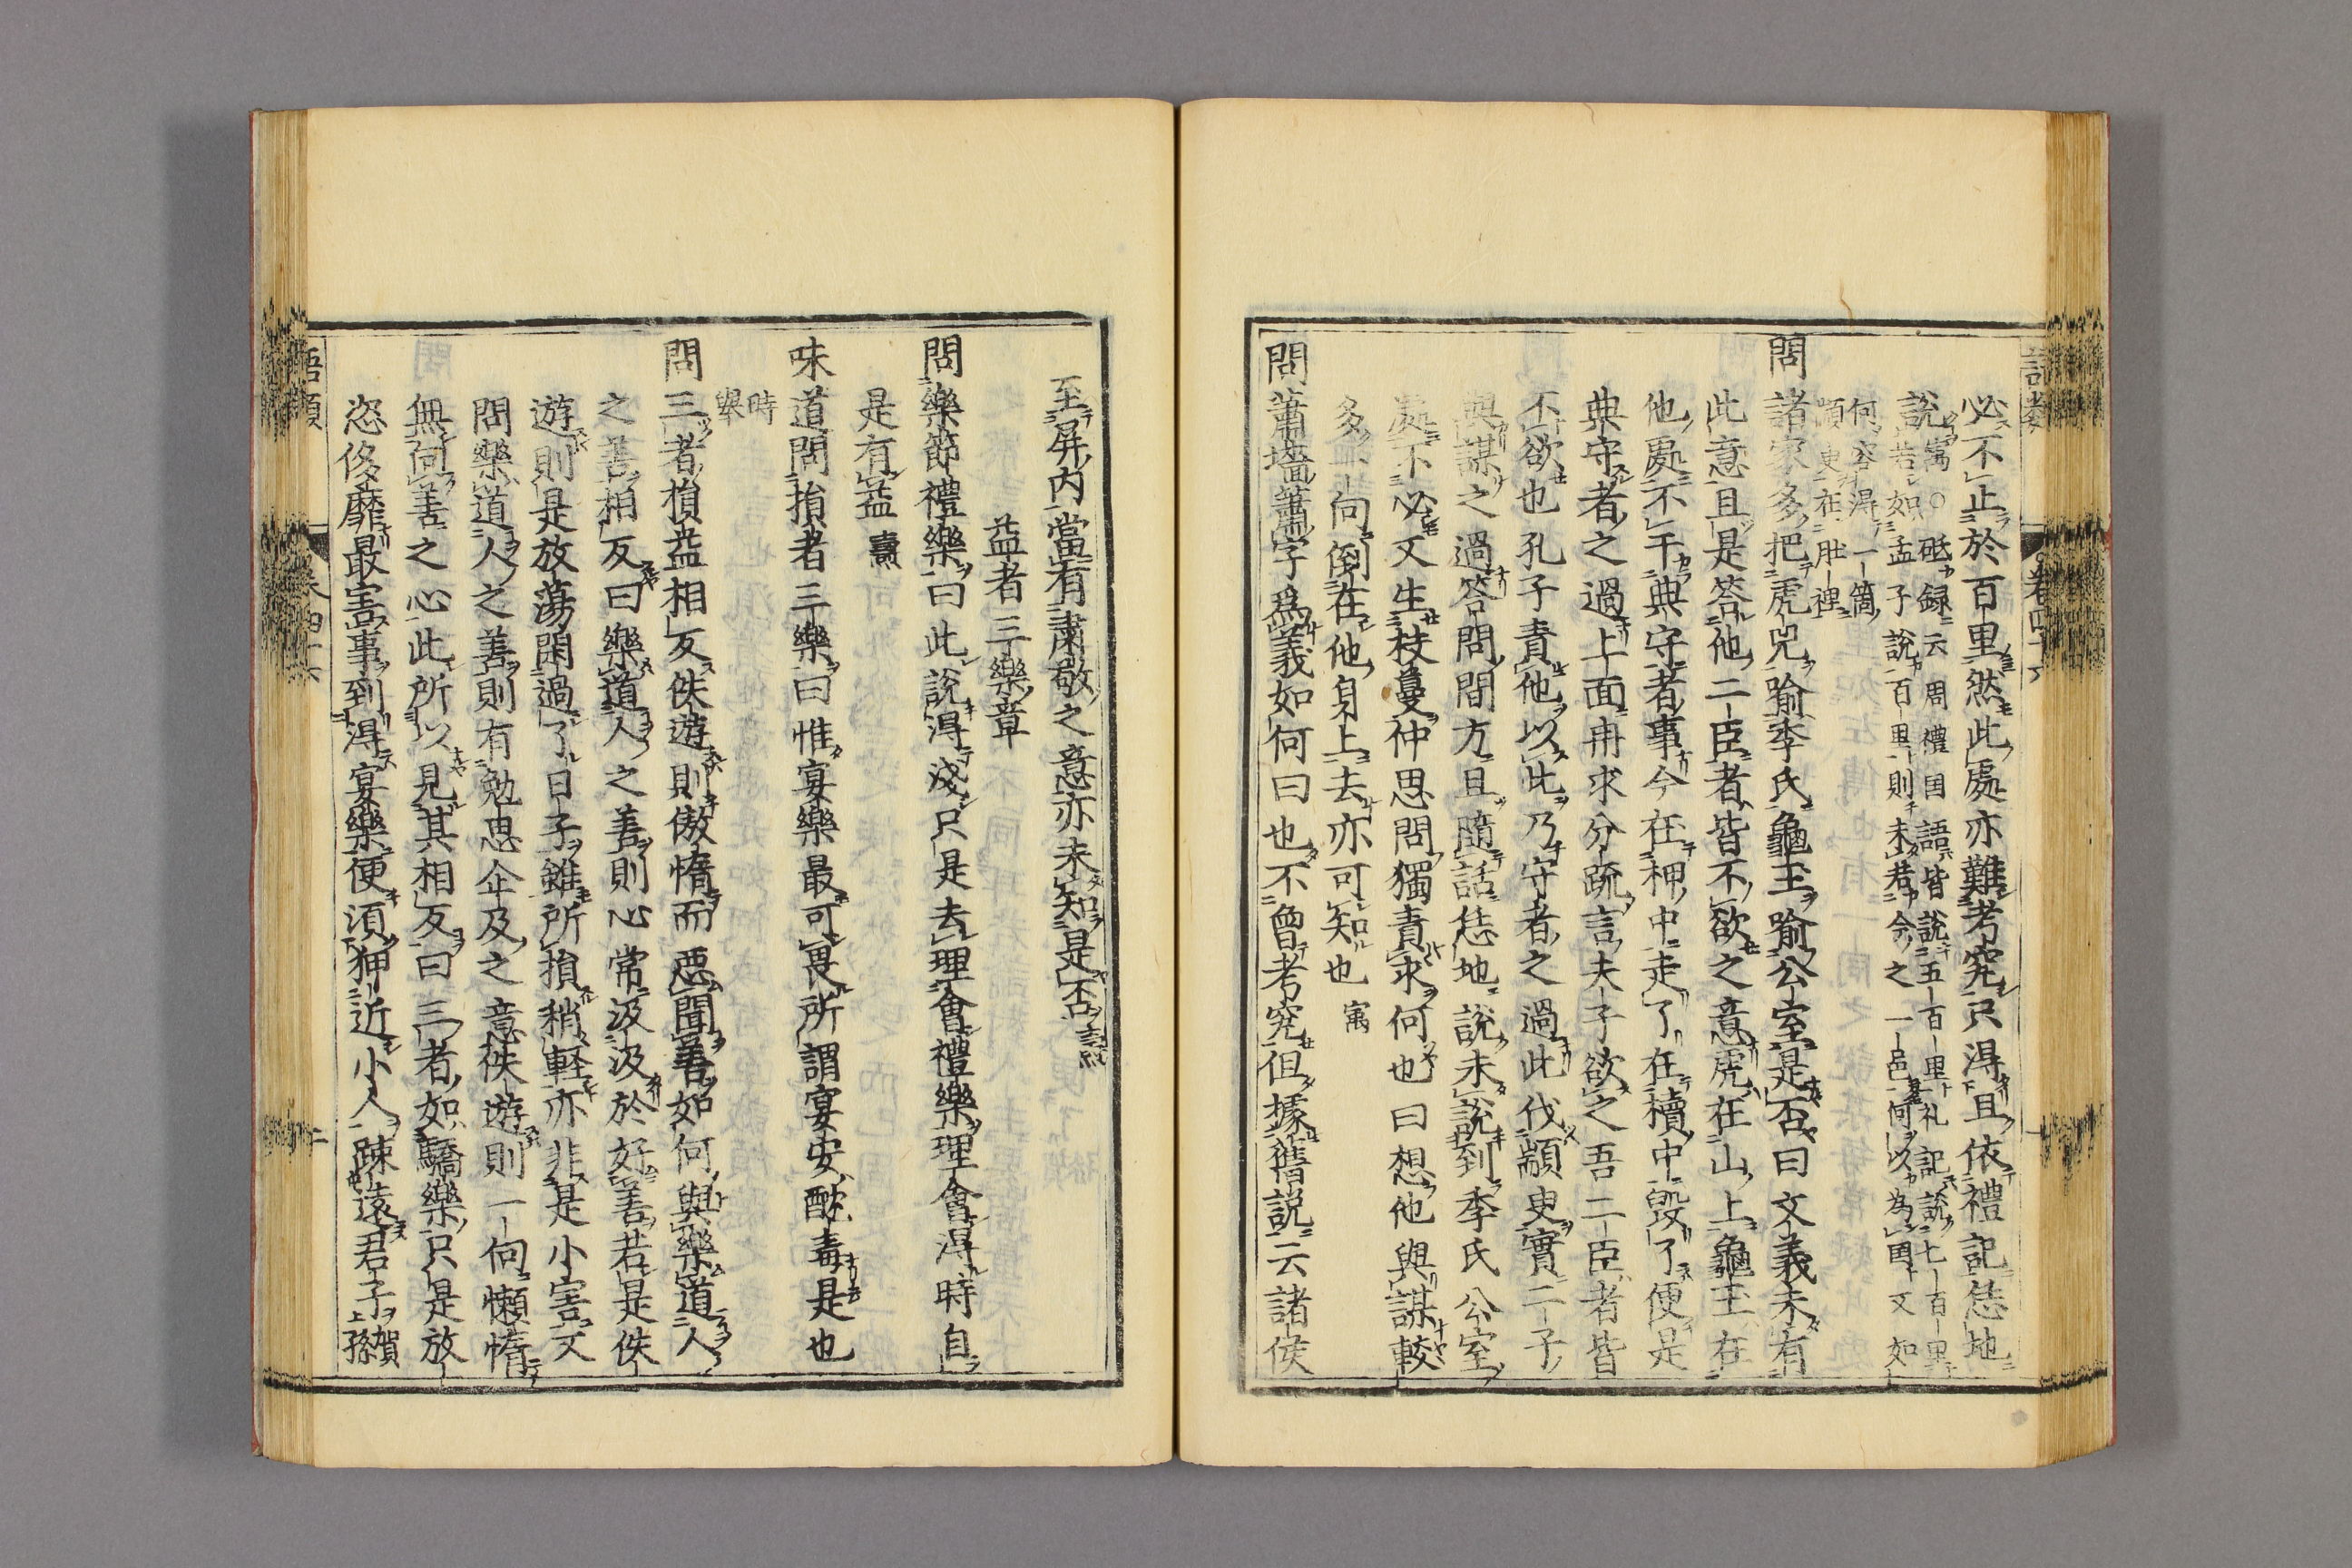 必不止於百里然此處亦難考究只淂且依禮記恁地
說㝢○砥録云周禮国語皆說五百里礼記說七百里
若如孟子說百里則未若今之一邑何以為国又如
何容淂一箇
顓臾在肚裡
問諸家多把虎兕喻季氏龜玉喻公室是否曰文義未有
此意且是答他二臣者皆不欲之意虎在山上龜玉在
他處不干典守者事今在柙中走了在櫝中毁了便是
典守者之過上面冉求分疏言夫子欲之吾二臣者皆
不欲也孔子責他以此乃守者之過此伐顓臾實二子
與謀之過答問間方且隨話恁地說未說到季氏公室
處不必又生枝蔓仲思問獨責求何也曰想他與謀較
多一向倒在他身上去亦可知也㝢
問蕭墻蕭字爲義如何曰也不曾考究但據舊説云諸侯
至屏内當有肅敬之意亦未知是否
益者三樂章
問樂節禮樂曰此說淂淺只是去理會禮樂理會淂時自
是有益燾
味道問損者三樂曰惟宴樂最可畏所謂宴安酖毒是也
時
舉
問三者損益相反佚遊則傲惰而惡聞善如何與樂道人
之善相反曰樂道人之善則心常汲汲於好善若是佚
遊則是放蕩閑過了日子雖所損稍軽亦非是小害又
問樂道人之善則有勉思企及之意佚遊則一向懶惰
無向善之心此所以見其相反曰三者如驕樂只是放
恣侈靡最害事到淂宴樂便湏狎近小人疎遠君子賀
孫
語類
卷四十六